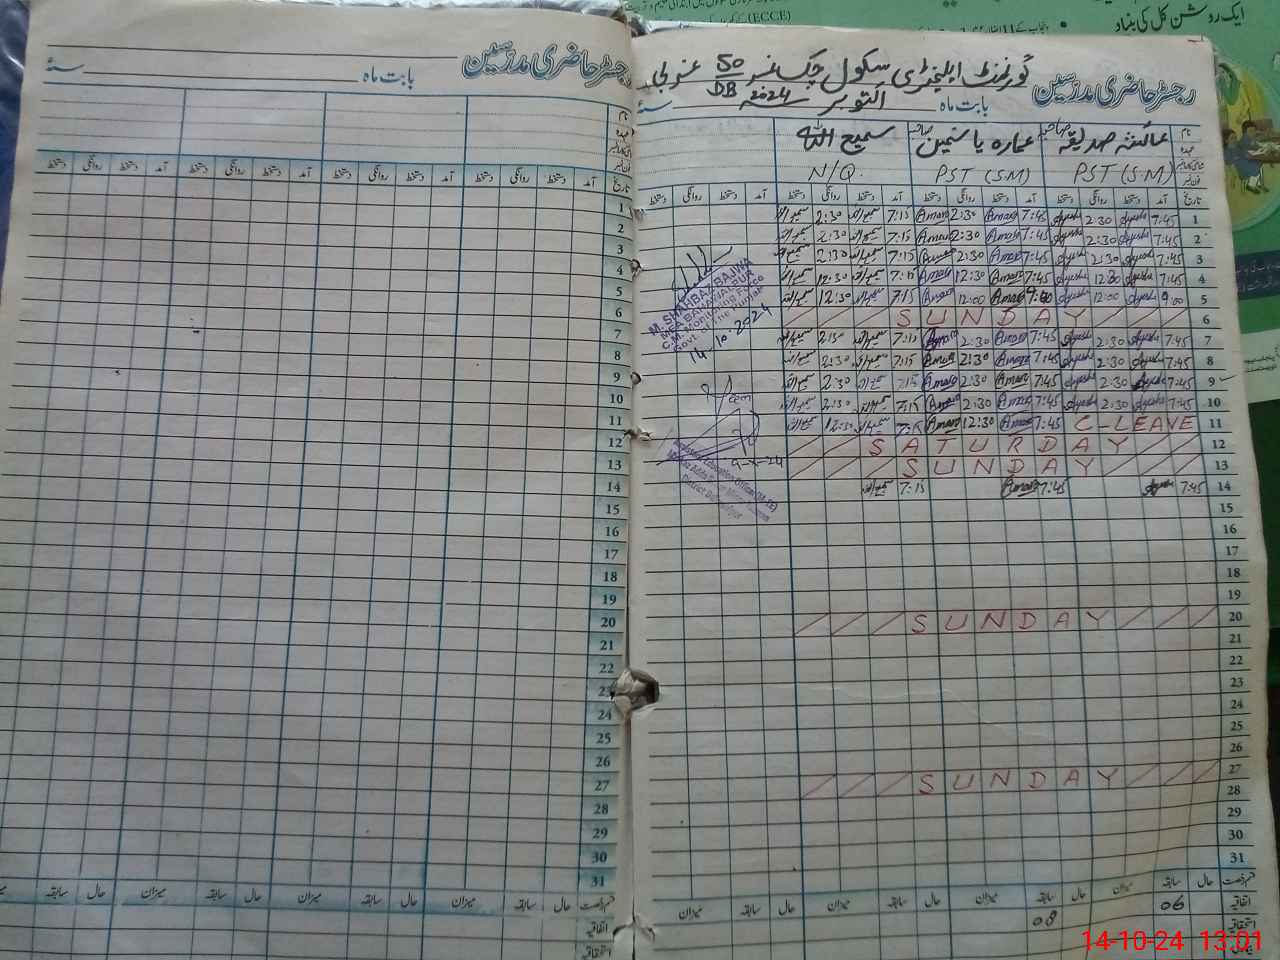 ایک روشن کل کی بنیاد
(ECCE)
رجسٹر حاضری مدرسین
بابت ماہ
سنہ
گورنمنٹ ایلیمنٹری سکول چک نمبر 50/DB غربی
رجسٹر حاضری مدرسین
بابت ماہ اکتوبر 2024 سنہ
نام عائشہ صدیقہ صاحبہ عمارہ یاسمین صاحبہ سمیع اللہ
عہدہ PST (S.M) PST (S.M) N/Q.
تاریخ آمد دستخط روانگی دستخط آمد دستخط روانگی دستخط آمد دستخط روانگی دستخط آمد دستخط روانگی دستخط
1 7:45 Ayesha 2:30 Ayesha 7:45 Amara 2:30 Amara 7:15 سمیع اللہ 2:30 سمیع اللہ
2 7:45 Ayesha 2:30 Ayesha 7:45 Amara 2:30 Amara 7:15 سمیع اللہ 2:30 سمیع اللہ
3 7:45 Ayesha 2:30 Ayesha 7:45 Amara 2:30 Amara 7:15 سمیع اللہ 2:30 سمیع اللہ
4 7:45 Ayesha 12:30 Ayesha 7:45 Amara 12:30 Amara 7:15 سمیع اللہ 12:30 سمیع اللہ
5 9:00 Ayesha 12:00 Ayesha 9:00 Amara 12:00 Amara 7:15 سمیع اللہ 12:30 سمیع اللہ
6 SUNDAY
7 7:45 Ayesha 2:30 Ayesha 7:45 Amara 2:30 Amara 7:15 سمیع اللہ 2:30 سمیع اللہ
8 7:45 Ayesha 2:30 Ayesha 7:45 Amara 2:30 Amara 7:15 سمیع اللہ 2:30 سمیع اللہ
9 7:45 Ayesha 2:30 Ayesha 7:45 Amara 2:30 Amara 7:15 سمیع اللہ 2:30 سمیع اللہ
10 7:45 Ayesha 2:30 Ayesha 7:45 Amara 2:30 Amara 7:15 سمیع اللہ 2:30 سمیع اللہ
11 C-LEAVE 7:45 Amara 12:30 Amara 7:15 سمیع اللہ 12:30 سمیع اللہ
12 SATURDAY
13 SUNDAY
14 7:45 Ayesha 7:45 Amara 7:15 سمیع اللہ
15
16
17
18
19
20 SUNDAY
21
22
23
24
25
26
27 SUNDAY
28
29
30
31
M. SHAHBAZ BAJWA
MEA BAHAWALPUR
C.M. Monitoring Force
Govt of the Punjab
14-10-2024
9-X-24
قسم رخصت حال سابقہ میزان حال سابقہ میزان حال سابقہ میزان حال سابقہ میزان
اتفاقیہ 06
استحقاقیہ 08
تاریخ آمد دستخط روانگی دستخط آمد دستخط روانگی دستخط آمد دستخط روانگی دستخط آمد دستخط روانگی دستخط
1
2
3
4
5
6
7
8
9
10
11
12
13
14
15
16
17
18
19
20
21
22
23
24
25
26
27
28
29
30
31
قسم رخصت حال سابقہ میزان حال سابقہ میزان حال سابقہ میزان حال سابقہ
اتفاقیہ
استحقاقیہ
14-10-24 13:01